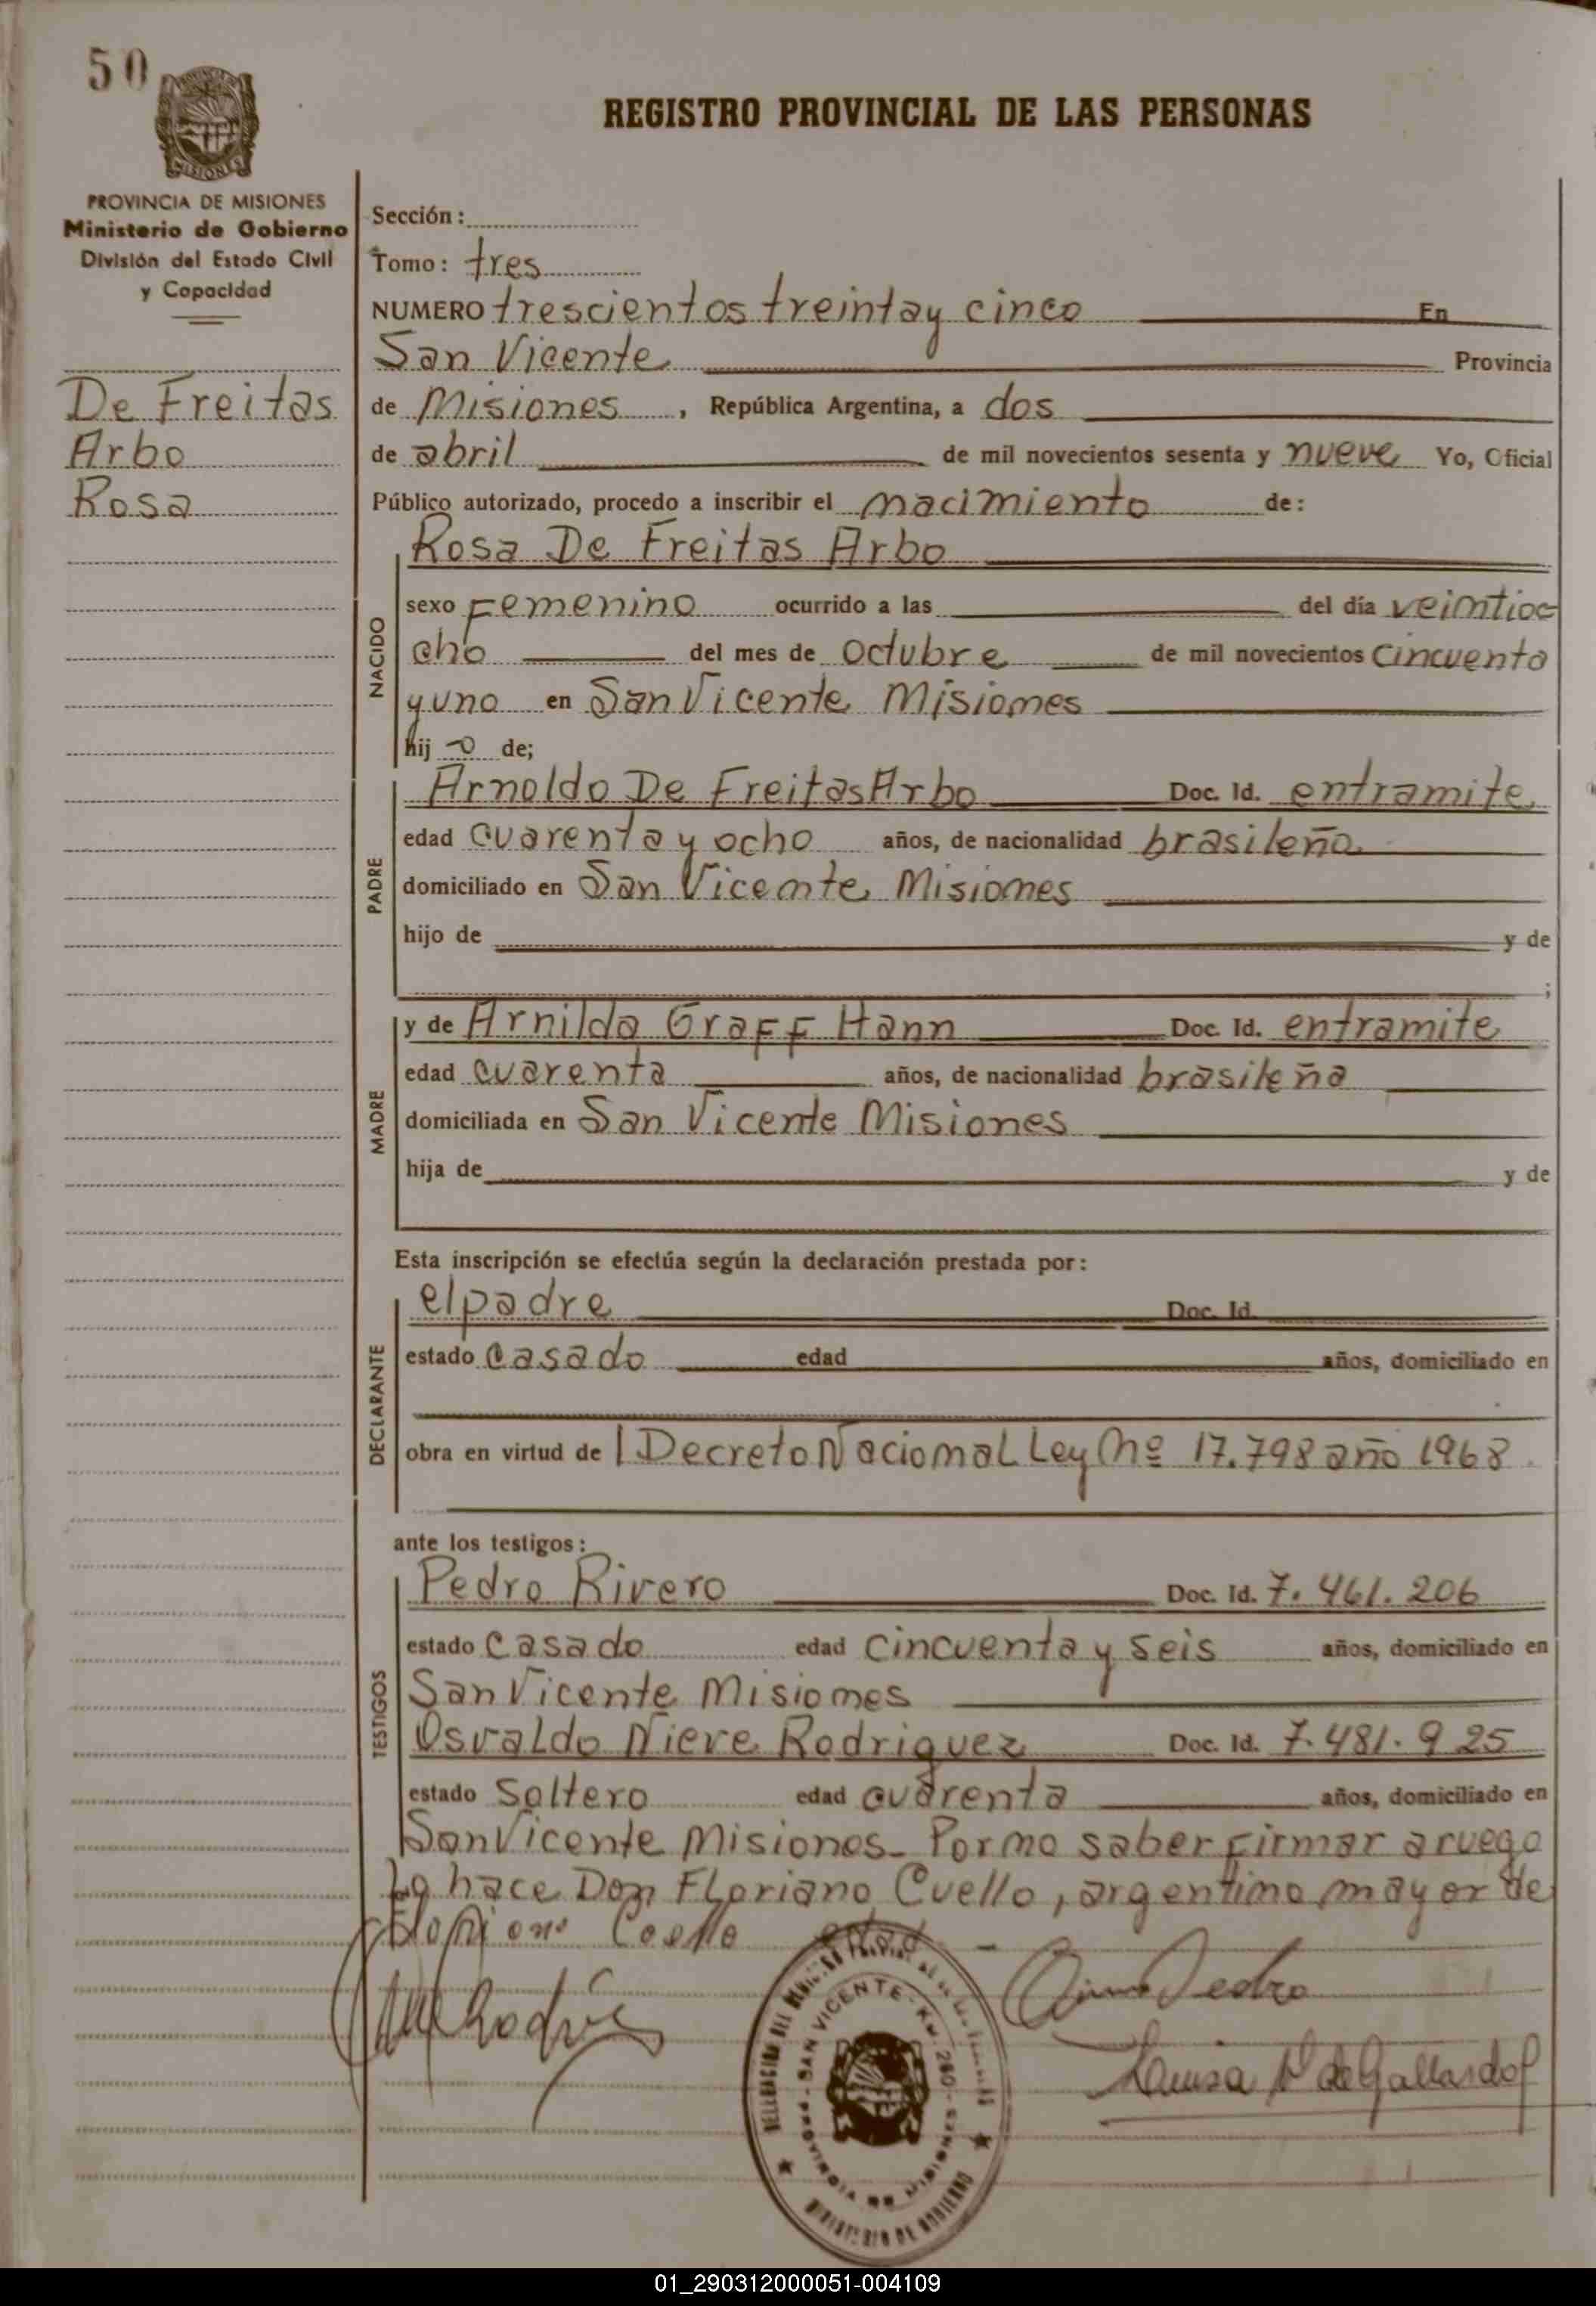 50
REGISTRO PROVINCIAL DE LAS PERSONAS
MISIONES
PROVINCIA DE MISIONES
Ministerio de Gobierno
División del Estado Civil
y Capacidad
De Freitas
Arbo
Rosa
Sección:
Tomo: tres
NUMERO trescientos treinta y cinco En
San Vicente Provincia
de Misiones, República Argentina, a dos
de abril de mil novecientos sesenta y nueve Yo, Oficial
Público autorizado, procedo a inscribir el nacimiento de:
Rosa De Freitas Arbo
NACIDO
sexo Femenino ocurrido a las del día veintioc
cho del mes de octubre de mil novecientos cincuenta
y uno en San Vicente Misiones
hij o de;
PADRE
Arnoldo De Freitas Arbo Doc. Id. entramite
edad cuarenta y ocho años, de nacionalidad brasileña
domiciliado en San Vicente Misiones
hijo de y de
;
MADRE
y de Arnilda Graff Hann Doc. Id. entramite
edad cuarenta años, de nacionalidad brasileña
domiciliada en San Vicente Misiones
hija de y de
Esta inscripción se efectúa según la declaración prestada por:
DECLARANTE
el padre Doc. Id.
estado casado edad años, domiciliado en
obra en virtud de l Decreto Nacional Ley Nº 17.798 año 1968
ante los testigos:
TESTIGOS
Pedro Rivero Doc. Id. 7.461.206
estado casado edad cincuenta y seis años, domiciliado en
San Vicente Misiones
Osvaldo Nieve Rodriguez Doc. Id. 7.481.925
estado soltero edad cuarenta años, domiciliado en
San Vicente Misiones. Por no saber firmar a ruego
lo hace Don Floriano Cuello, argentino mayor de
edad
Pedro
Luisa de Gallardo
SAN VICENTE - KM. 280 - MISIONES
PROVINCIA DE MISIONES
MINISTERIO DE GOBIERNO
01_290312000051-004109